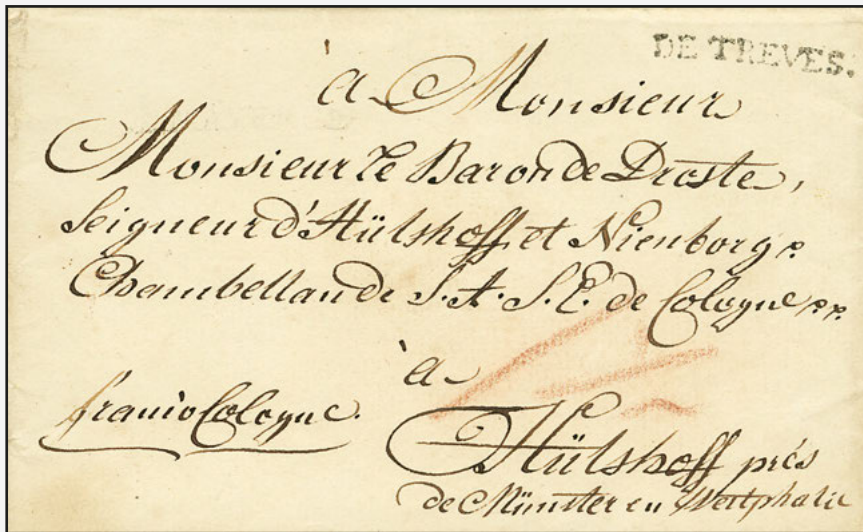 DE TREVES.
à Monsieur
Monsieur le Baron de Droste,
Seigneur d'Hülshoff et Nienborg p.
Chambellan de S. A. S. E. de Cologne p.p.
à
franco Cologne.
Hülshoff prés
de Münster en Westphalie